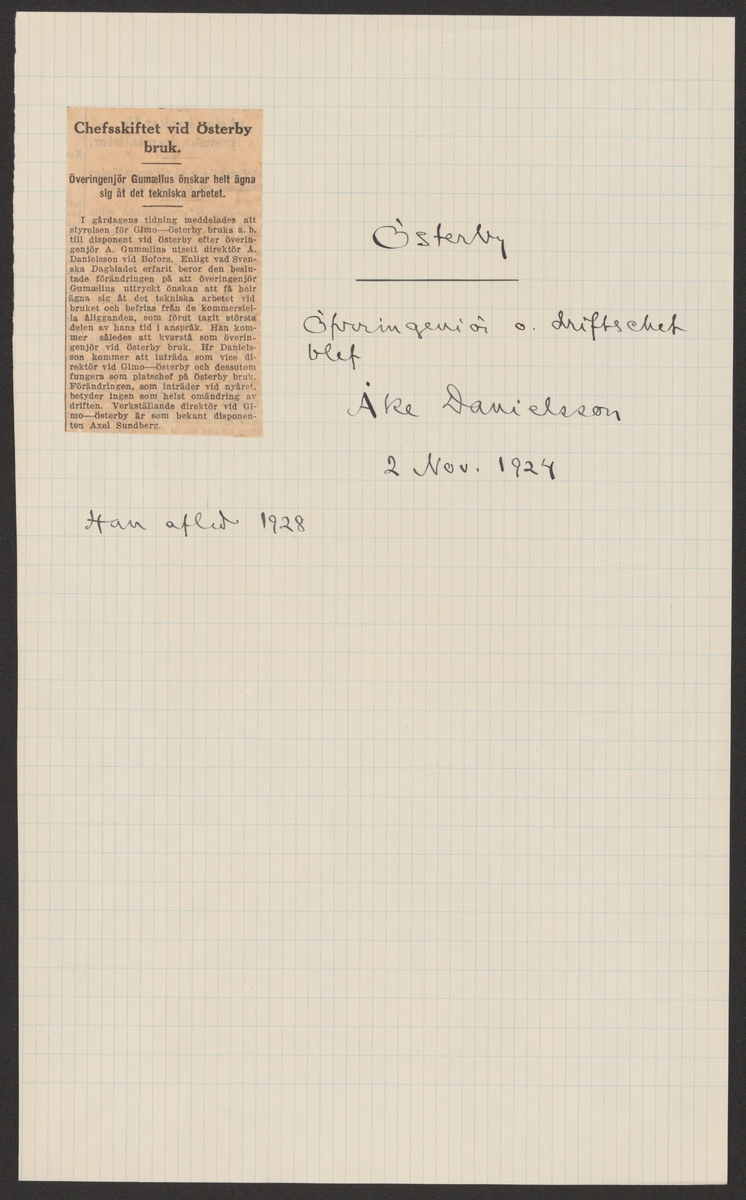 Chefsskiftet vid Österby
bruk.
Överingenjör Gumælius önskar helt ägna
sig åt det tekniska arbetet.
I gårdagens tidning meddelades att
styrelsen för Gimo—Österby bruks a. b.
till disponent vid Österby efter överin-
genjör A. Gumælius utsett direktör Å.
Danielsson vid Bofors. Enligt vad Sven-
ska Dagbladet erfarit beror den beslu-
tade förändringen på att överingenjör
Gumælius uttryckt önskan att få helt
ägna sig åt det tekniska arbetet vid
bruket och befrias från de kommersiel-
la åligganden, som förut tagit största
delen av hans tid i anspråk. Han kom-
mer således att kvarstå som överin-
genjör vid Österby bruk. Hr Daniels-
son kommer att inträda som vice di-
rektör vid Gimo—Österby och dessutom
fungera som platschef på Österby bruk.
Förändringen, som inträder vid nyåret,
betyder ingen som helst omändring av
driften. Verkställande direktör vid Gi-
mo—Österby är som bekant disponen-
ten Axel Sundberg.
Österby
Öfveringeniör o. driftschef
blef
Åke Danielsson
2 Nov. 1924
Han afled 1928